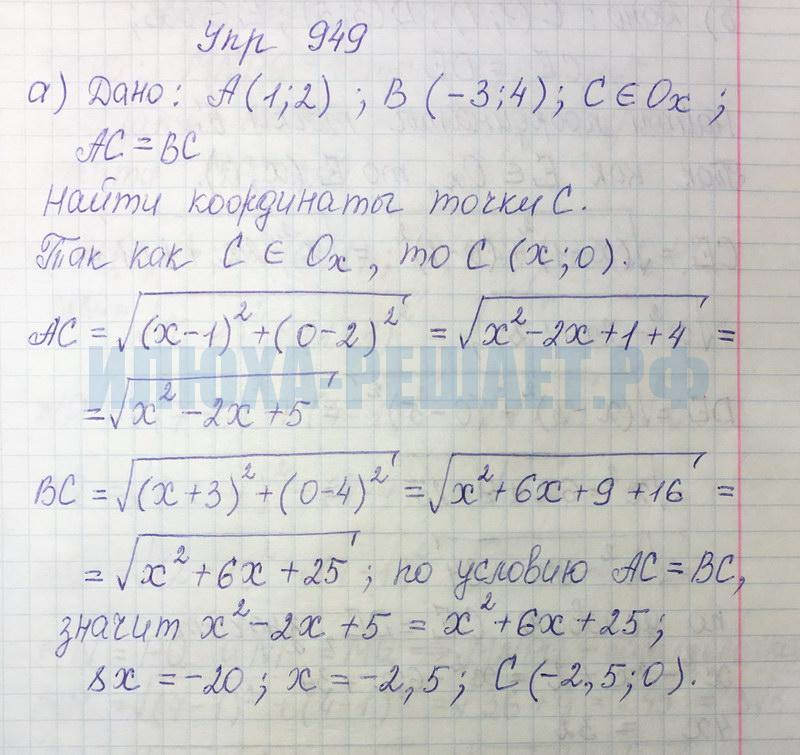 Упр 949
а) Дано: A(1;2); B(-3;4); C∈Ox;
AC=BC
Найти координаты точки C.
Так как C∈Ox, то C(x;0).
AC = √((x-1)²+(0-2)²) = √(x²-2x+1+4) =
ИЛЮХА-РЕШАЕТ.РФ
= √(x²-2x+5)
BC = √((x+3)²+(0-4)²) = √(x²+6x+9+16) =
= √(x²+6x+25); по условию AC=BC,
значит x²-2x+5 = x²+6x+25;
8x = -20; x = -2,5; C(-2,5;0).